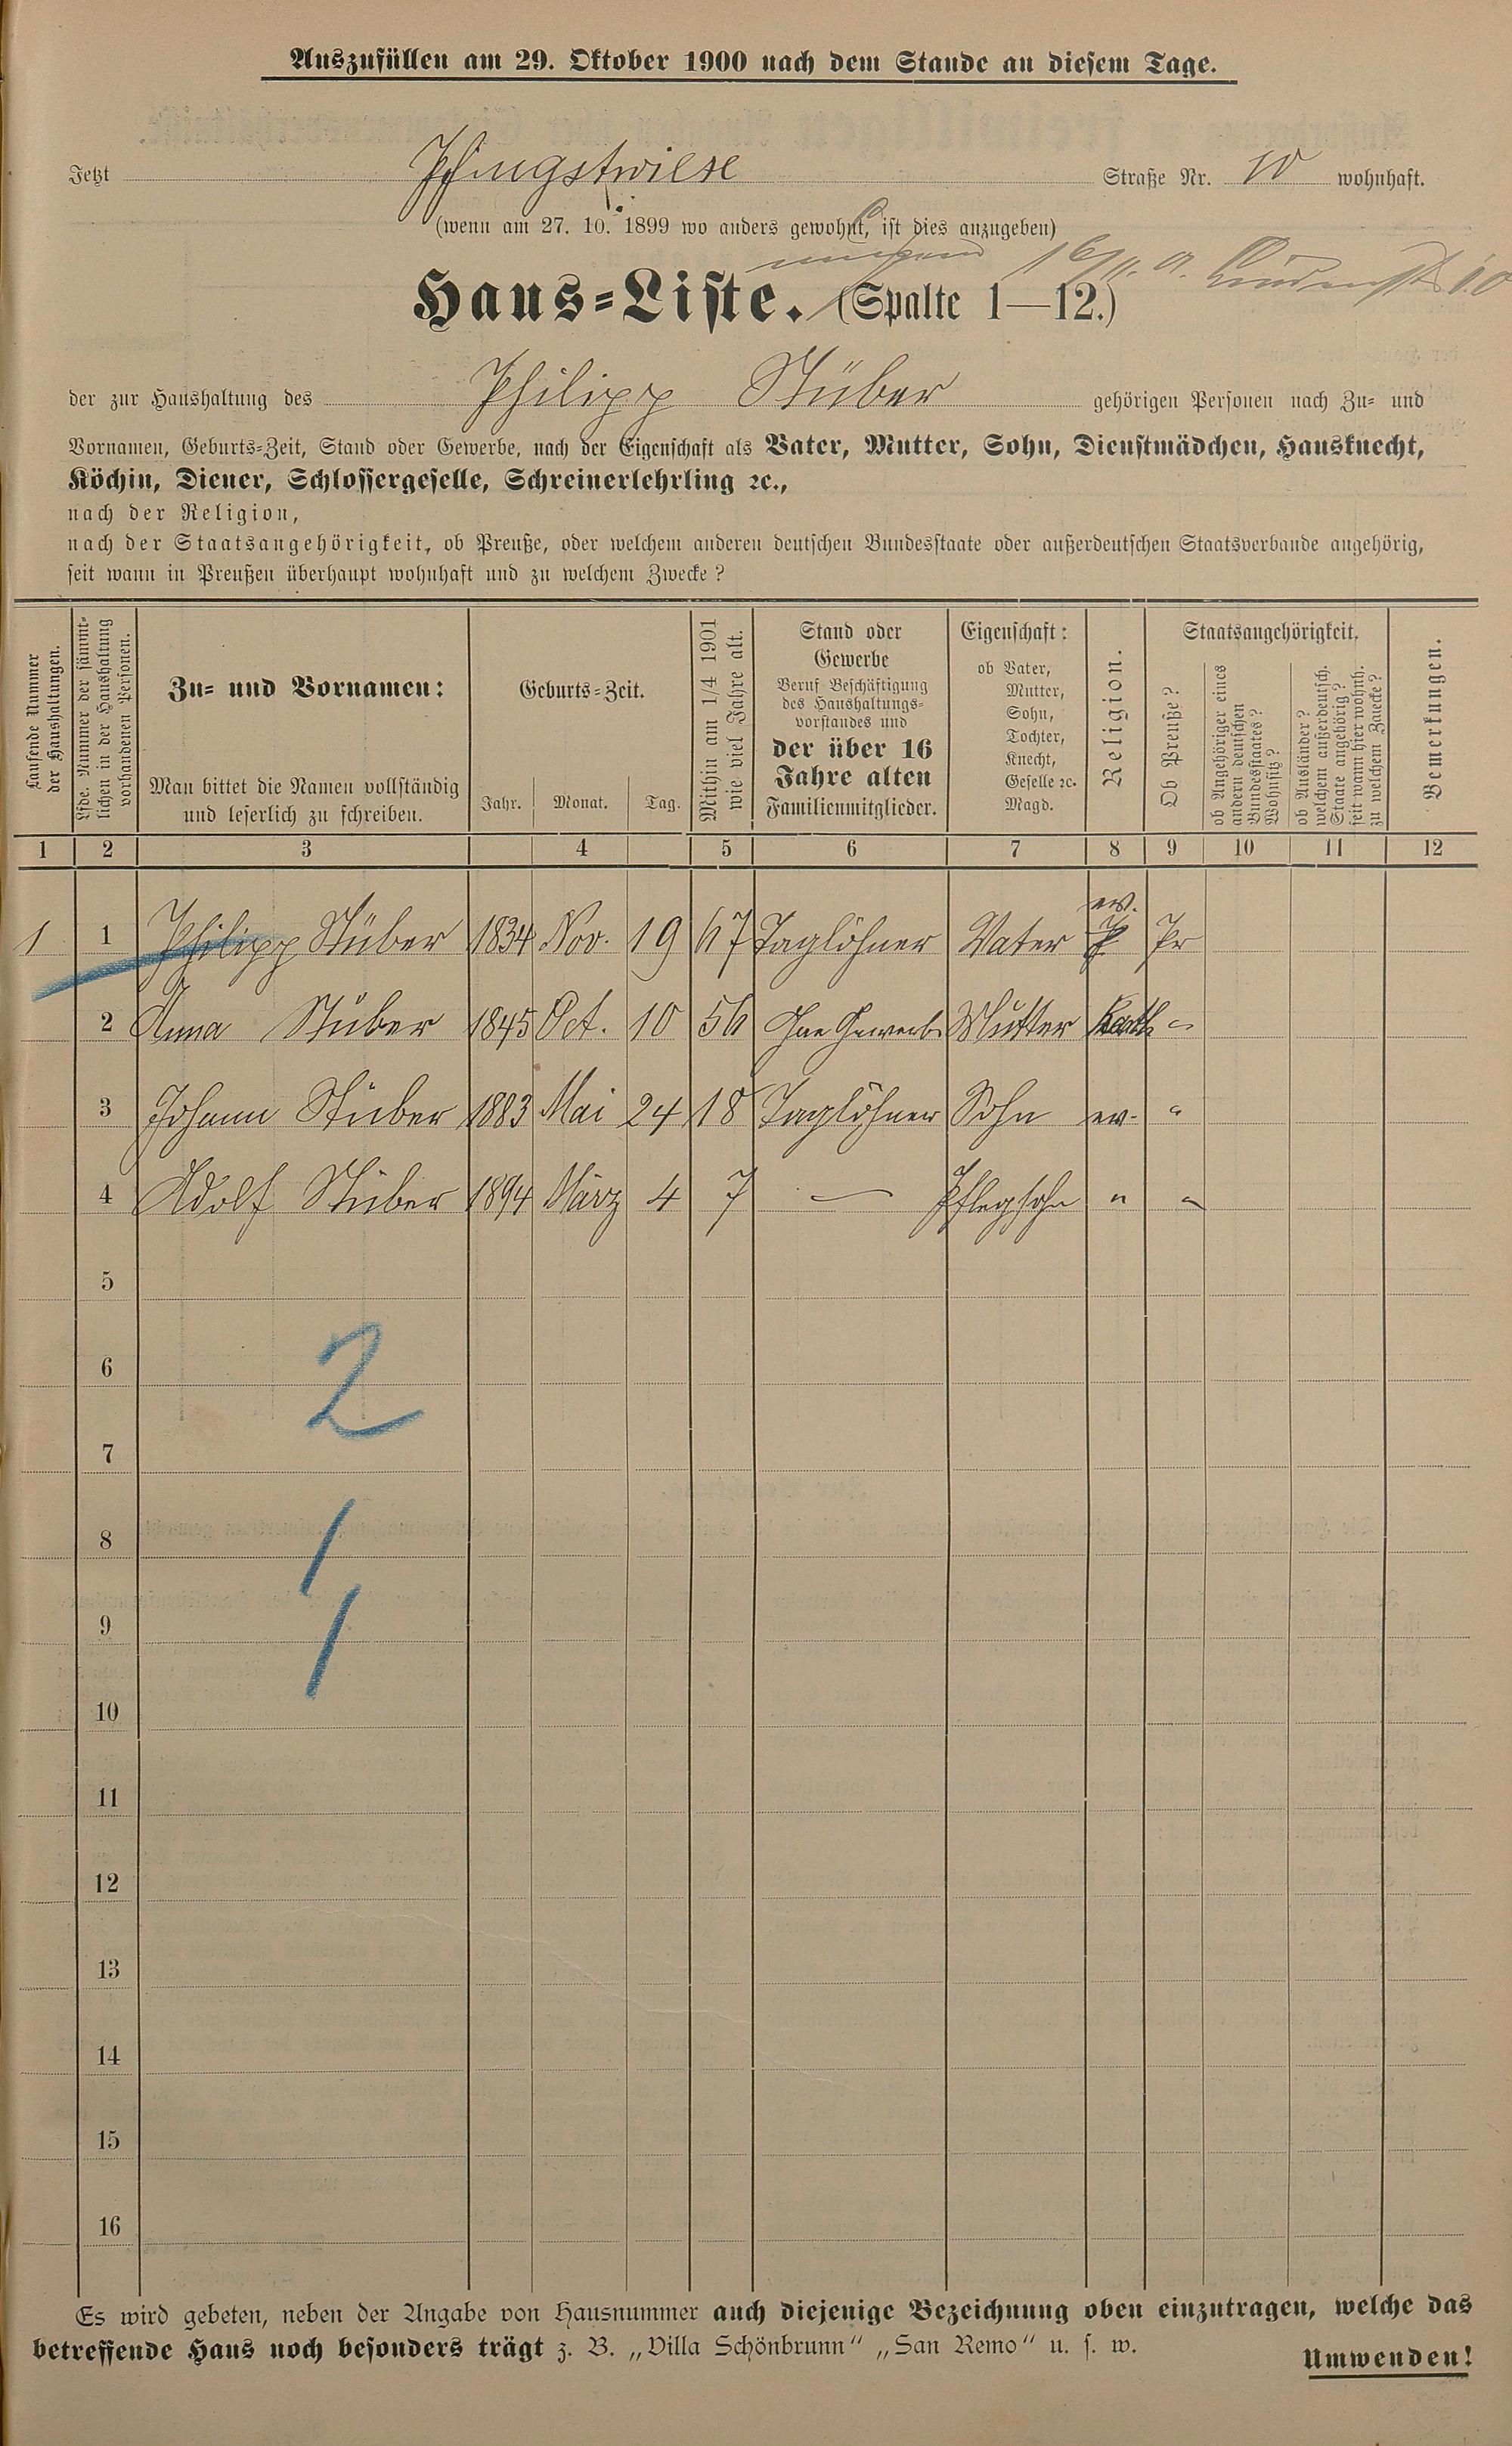 Auszufüllen am 29. Oktober 1900 nach dem Stande an diesem Tage.
Jetzt Pfingstwiese Straße Nr. 10 wohnhaft.
(wenn am 27. 10. 1899 wo anders gewohnt, ist dies anzugeben)
Haus-Liste. (Spalte 1—12.)
der zur Haushaltung des Philipp Stüber gehörigen Personen nach Zu- und
Vornamen, Geburts-Zeit, Stand oder Gewerbe, nach der Eigenschaft als Vater, Mutter, Sohn, Dienstmädchen, Hausknecht,
Köchin, Diener, Schlossergeselle, Schreinerlehrling ꝛc.,
nach der Religion,
nach der Staatsangehörigkeit, ob Preuße, oder welchem anderen deutschen Bundesstaate oder außerdeutschen Staatsverbande angehörig,
seit wann in Preußen überhaupt wohnhaft und zu welchem Zwecke?
Laufende Nummer
der Haushaltungen.
Lfde. Nummer der sämmt-
lichen in der Haushaltung
vorhandenen Personen.
Zu- und Vornamen:
Man bittet die Namen vollständig
und leserlich zu schreiben.
Geburts-Zeit.
Jahr. Monat. Tag.
Mithin am 1/4 1901
wie viel Jahre alt.
Stand oder
Gewerbe
Beruf Beschäftigung
des Haushaltungs-
vorstandes und
der über 16
Jahre alten
Familienmitglieder.
Eigenschaft:
ob Vater,
Mutter,
Sohn,
Tochter,
Knecht,
Geselle ꝛc.
Magd.
Religion.
Staatsangehörigkeit.
Ob Preuße?
ob Angehöriger eines
andern deutschen
Bundesstaates?
Wohnsitz?
ob Ausländer?
welchem außerdeutsch.
Staate angehörig?
seit wann hier wohnh.
zu welchem Zwecke?
Bemerkungen.
1 2 3 4 5 6 7 8 9 10 11 12
ev.
1 1 Philipp Stüber 1834 Nov. 19 67 Taglöhner Vater Pr
2 Anna Stüber 1845 Oct. 10 56 Gewerb Mutter Kath "
3 Johann Stüber 1883 Mai 24 18 Taglöhner Sohn ev. "
4 Adolf Stüber 1894 März 4 7 — Pflegsohn " "
5
6
2
7
8
1
9
1
10
11
12
13
14
15
16
Es wird gebeten, neben der Angabe von Hausnummer auch diejenige Bezeichnung oben einzutragen, welche das
betreffende Haus noch besonders trägt z. B. „Villa Schönbrunn“ „San Remo“ u. s. w.
Umwenden!